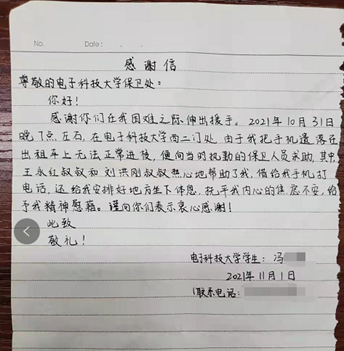 No.          Date:
感谢信
尊敬的电子科技大学保卫处:
你好!
感谢你们在我困难之际伸出援手。2021年10月31日
晚7点左右,在电子科技大学西二门处,由于我把手机遗落在
出租车上无法正常进校,便向当时执勤的保卫人员求助,其中
王永红叔叔和刘洪刚叔叔热心地帮助了我,借给我手机打
电话,还给我安排好地方坐下休息,抚平我内心的焦急不安,给
予我精神慰藉。谨向你们表示衷心感谢!
此致
敬礼!
电子科技大学学生:冯
2021年11月1日
(联系电话: